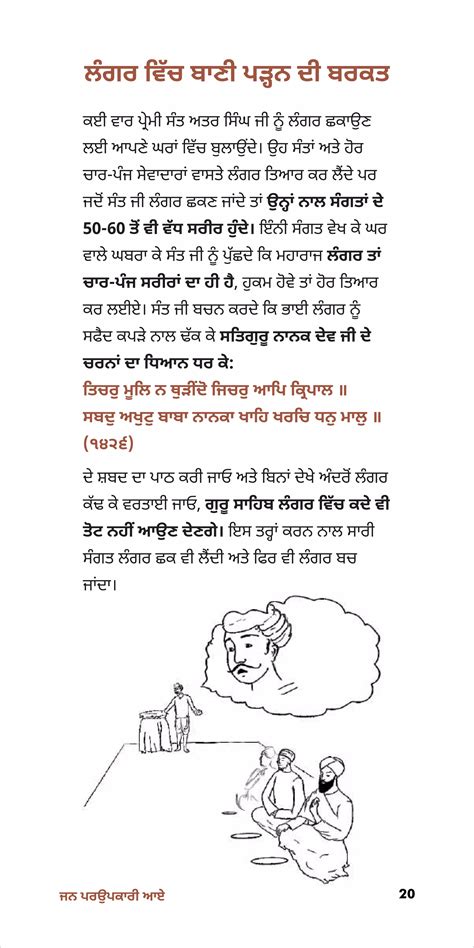 ਲੰਗਰ ਵਿੱਚ ਬਾਣੀ ਪੜ੍ਹਨ ਦੀ ਬਰਕਤ
ਕਈ ਵਾਰ ਪ੍ਰੇਮੀ ਸੰਤ ਅਤਰ ਸਿੰਘ ਜੀ ਨੂੰ ਲੰਗਰ ਛਕਾਉਣ
ਲਈ ਆਪਣੇ ਘਰਾਂ ਵਿੱਚ ਬੁਲਾਉਂਦੇ। ਉਹ ਸੰਤਾਂ ਅਤੇ ਹੋਰ
ਚਾਰ-ਪੰਜ ਸੇਵਾਦਾਰਾਂ ਵਾਸਤੇ ਲੰਗਰ ਤਿਆਰ ਕਰ ਲੈਂਦੇ ਪਰ
ਜਦੋਂ ਸੰਤ ਜੀ ਲੰਗਰ ਛਕਣ ਜਾਂਦੇ ਤਾਂ ਉਨ੍ਹਾਂ ਨਾਲ ਸੰਗਤਾਂ ਦੇ
50-60 ਤੋਂ ਵੀ ਵੱਧ ਸਰੀਰ ਹੁੰਦੇ। ਇੰਨੀ ਸੰਗਤ ਵੇਖ ਕੇ ਘਰ
ਵਾਲੇ ਘਬਰਾ ਕੇ ਸੰਤ ਜੀ ਨੂੰ ਪੁੱਛਦੇ ਕਿ ਮਹਾਰਾਜ ਲੰਗਰ ਤਾਂ
ਚਾਰ-ਪੰਜ ਸਰੀਰਾਂ ਦਾ ਹੀ ਹੈ, ਹੁਕਮ ਹੋਵੇ ਤਾਂ ਹੋਰ ਤਿਆਰ
ਕਰ ਲਈਏ। ਸੰਤ ਜੀ ਬਚਨ ਕਰਦੇ ਕਿ ਭਾਈ ਲੰਗਰ ਨੂੰ
ਸਫੈਦ ਕਪੜੇ ਨਾਲ ਢੱਕ ਕੇ ਸਤਿਗੁਰੂ ਨਾਨਕ ਦੇਵ ਜੀ ਦੇ
ਚਰਨਾਂ ਦਾ ਧਿਆਨ ਧਰ ਕੇ:
ਤਿਚਰੁ ਮੂਲਿ ਨ ਥੁੜੀਂਦੋ ਜਿਚਰੁ ਆਪਿ ਕ੍ਰਿਪਾਲ ॥
ਸਬਦੁ ਅਖੁਟੁ ਬਾਬਾ ਨਾਨਕਾ ਖਾਹਿ ਖਰਚਿ ਧਨੁ ਮਾਲੁ ॥
(੧੪੨੬)
ਦੇ ਸ਼ਬਦ ਦਾ ਪਾਠ ਕਰੀ ਜਾਓ ਅਤੇ ਬਿਨਾਂ ਦੇਖੇ ਅੰਦਰੋਂ ਲੰਗਰ
ਕੱਢ ਕੇ ਵਰਤਾਈ ਜਾਓ, ਗੁਰੂ ਸਾਹਿਬ ਲੰਗਰ ਵਿੱਚ ਕਦੇ ਵੀ
ਤੋਟ ਨਹੀਂ ਆਉਣ ਦੇਣਗੇ। ਇਸ ਤਰ੍ਹਾਂ ਕਰਨ ਨਾਲ ਸਾਰੀ
ਸੰਗਤ ਲੰਗਰ ਛਕ ਵੀ ਲੈਂਦੀ ਅਤੇ ਫਿਰ ਵੀ ਲੰਗਰ ਬਚ
ਜਾਂਦਾ।
ਜਨ ਪਰਉਪਕਾਰੀ ਆਏ
20